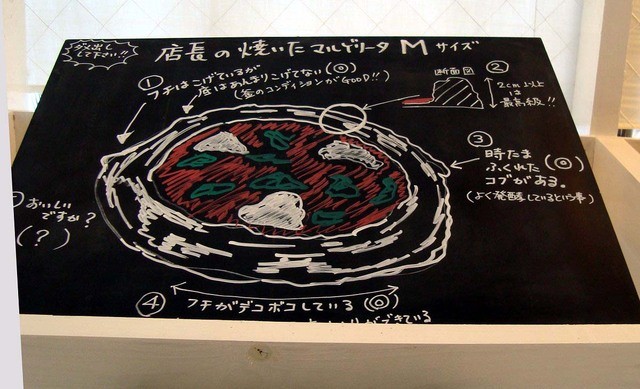 ダメ出し
して下さい!!
店長の焼いたマルゲリータMサイズ
①
フチはこげているが
底はあんまりこげてない(◎)
(釜のコンディションがGOOD!!)
断面図
②
2cm以上
は
最高級!!
③
時たま
ふくれた(◎)
コブがある。
(よく発酵しているという事)
おいしい
ですか?
(?)
④
フチがデコボコしている(◎)
ができている